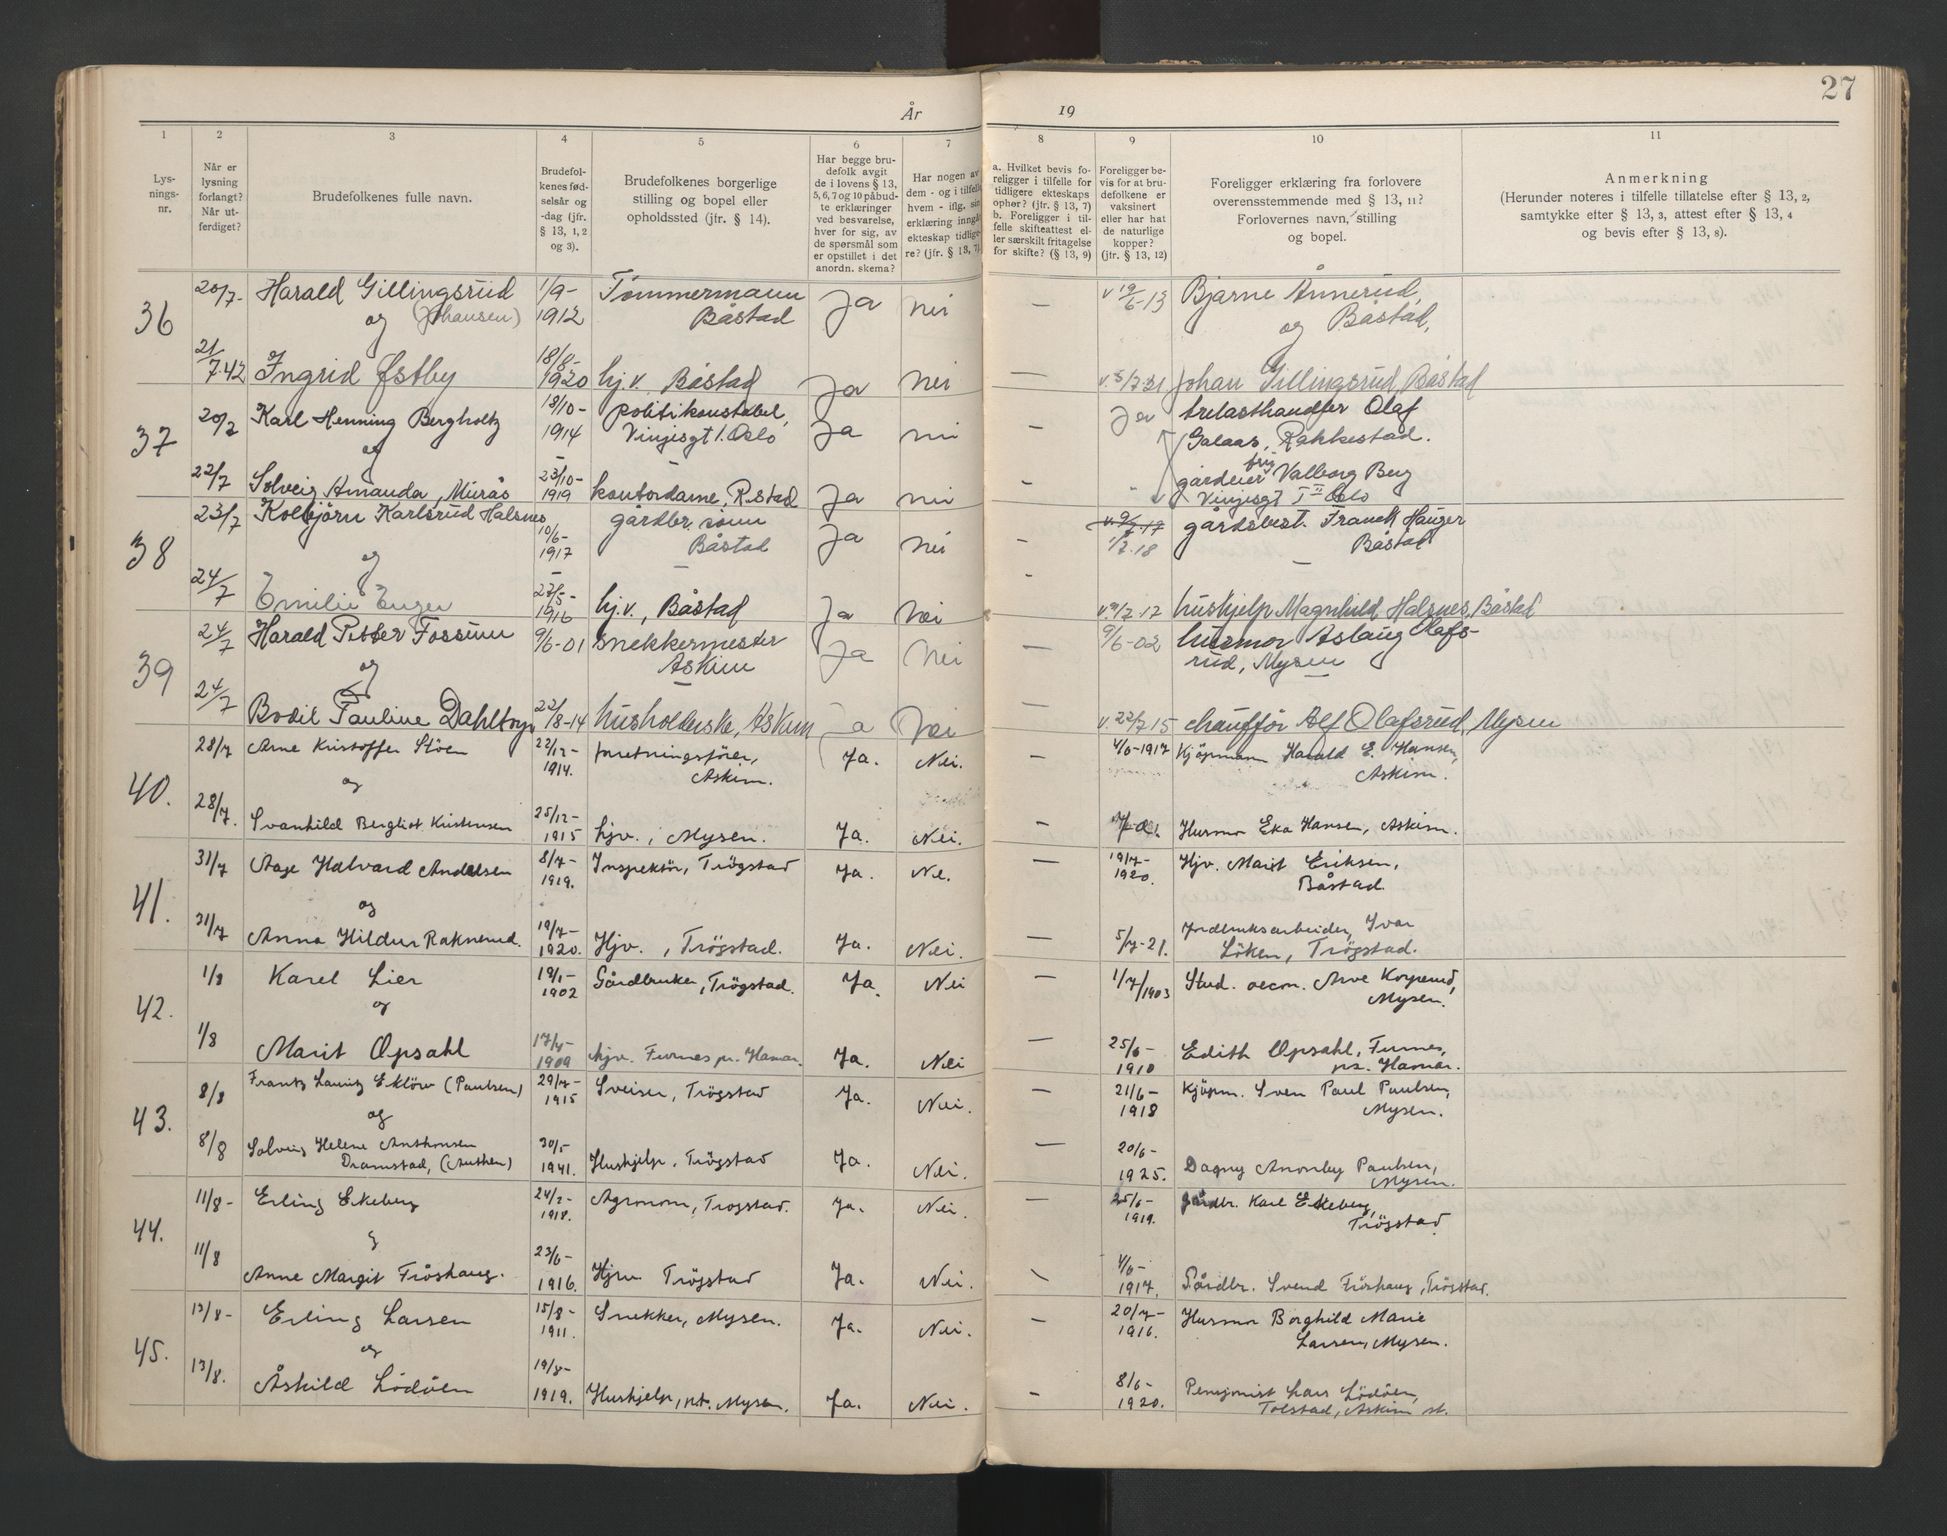 27
År 19
1 2 3 4 5 6 7 8 9 10 11
Lys-
nings-
nr.
Når er
lysning
forlangt?
Når ut-
ferdiget?
Brudefolkenes fulle navn.
Brudefol-
kenes fød-
selsår og
-dag (jfr.
§ 13, 1, 2
og 3).
Brudefolkenes borgerlige
stilling og bopel eller
opholdssted (jfr. § 14).
Har begge bru-
defolk avgit
de i lovens § 13,
5, 6, 7 og 10 påbud-
te erklæringer
ved besvarelse,
hver for sig, av
de spørsmål som
er opstillet i det
anordn. skema?
Har nogen av
dem - og i tilfelle
hvem - iflg. sin
erklæring inngått
ekteskap tidlige-
re? (jfr. § 13, 7)
a. Hvilket bevis fo-
religger i tilfelle for
tidligere ekteskaps
ophør? (jfr. § 13, 7)
b. Foreligger i til-
felle skifteattest el-
ler særskilt fritagelse
for skifte? (§ 13, 9)
Foreligger be-
vis for at bru-
defolkene er
vaksinert
eller har hat
de naturlige
kopper?
(jfr. § 13, 12)
Foreligger erklæring fra forlovere
overensstemmende med § 13, 11?
Forlovernes navn, stilling
og bopel.
Anmerkning
(Herunder noteres i tilfelle tillatelse efter § 13, 2,
samtykke efter § 13, 3, attest efter § 13, 4
og bevis efter § 13, 8).
36 20/7- Harald Gillingsrud (Johansen) 1/9-1912 Tømmermann Båstad Ja nei — v 19/6-13 Bjarne Annerud,
og og Båstad,
21/7.42 Ingrid Østby 18/8-1920 hj.v. Båstad Ja nei v. 5/7.21 Johan Gillingsrud, Båstad
37 20/7 Karl Henning Bergholtz 18/10-1914 politikonstabel, Vinjesgt 1. Oslo Ja nei — Ja trelasthandler Olaf
og Galaas, Rakkestad.
22/7 Solveig Amanda Murås 23/10-1919 kontordame, R.stad Ja nei - gårdeier fru Valborg Berg
Vinjesgt 1 II Oslo
38 23/7 Kolbjörn Karlsrud Halsnes 10/6-1917 gårdbr. sønn Båstad Ja nei — 1/7.18 gårdsbest. Franck Hauger
og Båstad
24/7 Emilie Enger 27/5-1916 hj.v., Båstad Ja Nei - v 9/7.17 hushjelp Magnhild Halsnes, Båstad
39 24/7 Harald Petter Fossum 9/6-01 snekkermester Askim Ja Nei — 9/6-02 husmor Aslaug Olafs-
og rud, Mysen
24/7 Bodil Pauline Dahltorp 22/8-14 husholderske, Askim Ja Nei v. 22/7 15 chauffør Alf Olafsrud, Mysen
40. 28/7 Arne Kristoffer Stöen 22/12-1914. forretningsfører, Askim. Ja. Nei. — 4/6-1917 Kjöpmann Harald E. Hansen,
og Askim.
28/7. Svanhild Bergliot Kristensen 25/12-1915 hjv., Mysen. Ja. Nei. — Husmor Eka Hansen, Askim.
41. 31/7 Aage Halvard Andersen 8/7-1919. Inspektör, Trögstad Ja. Ne. — 19/7-1920. Hjv. Marit Eriksen,
og Båstad.
31/7 Anna Hildur Raknerud. 19/7-1920. Hjv., Trögstad. Ja. Nei. — 5/7-21. Jordbruksarbeider, Ivar
Löken, Trögstad.
42. 1/8 Karel Lier 19/1-1902 Gårdbruker, Trögstad. Ja. Nei — 1/7/1903 Stud. oecon. Arve Korperud,
og Mysen.
1/8 Marit Opsahl 17/4-1909 hjv. Furnes pr. Hamar. Ja. Nei — 25/6-1910 Edith Opsahl, Furnes,
pr. Hamar.
43. 8/8 Frantz Lauritz Eklöw (Paulsen) 29/7-1915 Sveiser, Trögstad Ja. Nei. — 21/6-1918 Kjöpm. Sven Paul Paulsen,
og Mysen.
8/8 Solveig Helene Anthonsen 30/5-1941. Hushjelp, Trögstad Ja. Nei. — 20/6-1925. Dagny Anonby Paulsen,
Dramstad, (Authen) Mysen.
44. 11/8- Erling Ekeberg 24/2-1918. Agronom, Trogstad. Ja. Nei. — 25/6-1919. Gårdbr. Karl Ekeberg,
og Trögstad
11/8 Anne Margit Fröshaug. 23/6-1916. Hjv Trögstad Ja. Nei. — 4/6-1917. Gårdbr. Svend Fröshaug, Trögstad.
45. 13/8- Erling Larsen 15/8-1911. Snekker, Mysen. Ja. Nei. — 20/7-1916. Husmor Borghild Marie
og Larsen, Mysen.
13/8. Åshild Lödöen 19/8-1919. Hushjelp, pt. Mysen. Ja. Nei. — 8/6-1920. Pensjonist Lars Lödöen,
Tolstad, Askim st.